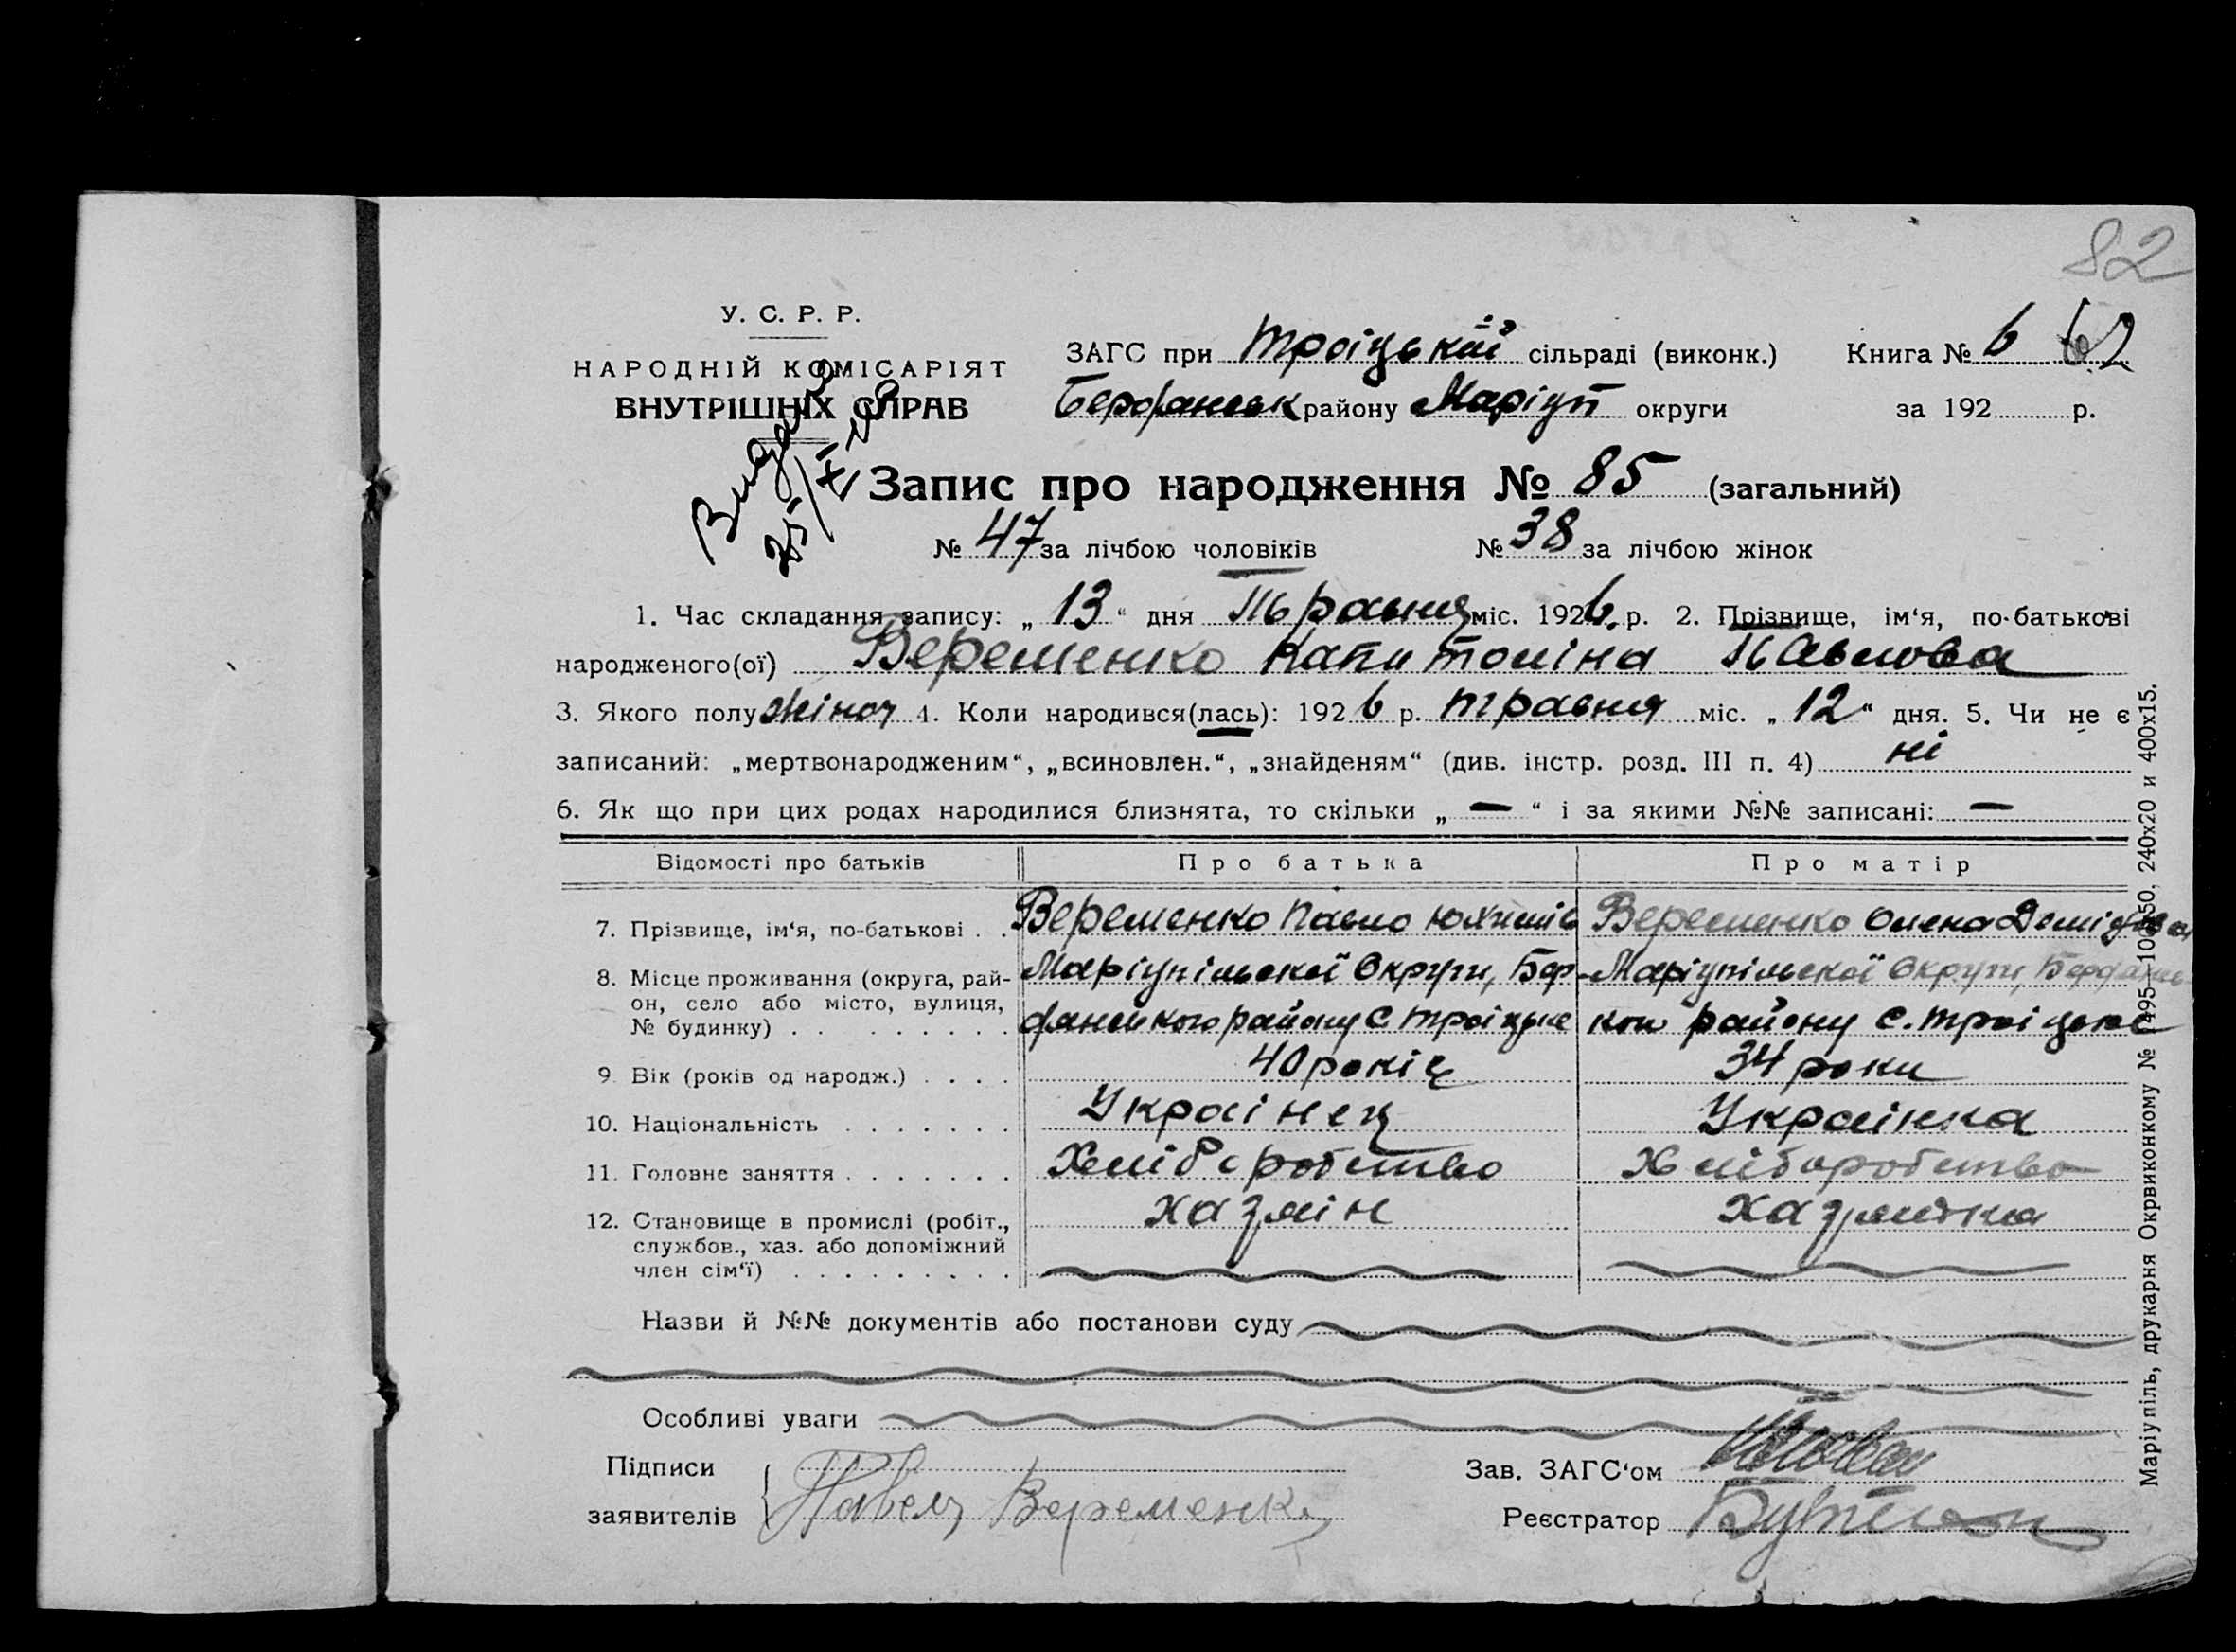 82
У. С. Р. Р.
НАРОДНІЙ КОМІСАРІЯТ
ВНУТРІШНІХ СПРАВ
ЗАГС при Троіцькій сільраді (виконк.) Книга № 6 62
Бердянськ району Маріуп округи за 192 р.
Видано
25/XI
Запис про народження № 85 (загальний)
№ 47 за лічбою чоловіків № 38 за лічбою жінок
1. Час складання запису: „ 13 “ дня Травня міс. 1926. р. 2. Прізвище, ім‘я, по-батькові
народженого(ої) Веременко Капитоліна Павлова
3. Якого полу жіноч 4. Коли народився(лась): 1926 р. травня міс. „ 12 “ дня. 5. Чи не є
записаний: „мертвонародженим“, „всиновлен.“, „знайденям“ (див. інстр. розд. III п. 4) ні
6. Як що при цих родах народилися близнята, то скільки „ — “ і за якими №№ записані: —
Відомості про батьків Про батька Про матір
7. Прізвище, ім‘я, по-батькові . . Веременко Павло Юхимів Веременко Олена Демідова
8. Місце проживання (округа, рай- Маріупільскої Округи, Бер- Маріупільскої Округи, Бердянсь
он, село або місто, вулиця,
№ будинку) . . . . . . . . дянського району с Троіцьке кого району с. Троіцьке
9. Вік (років од народж.) . . . . 40 років 34 роки
10. Національність . . . . . . . Украінец Украінка
11. Головне заняття . . . . . . . Хліборобство Хліборобство
12. Становище в промислі (робіт., хазяін хазяйка
службов., хаз. або допоміжний
член сім‘ї) . . . . . . . . .
Назви й №№ документів або постанови суду
Особливі уваги
Підписи Зав. ЗАГС‘ом
заявителів Павел Веременко Реєстратор
Маріупіль, друкарня Окрвиконкому № 1495—10050. 240х20 и 400х15.